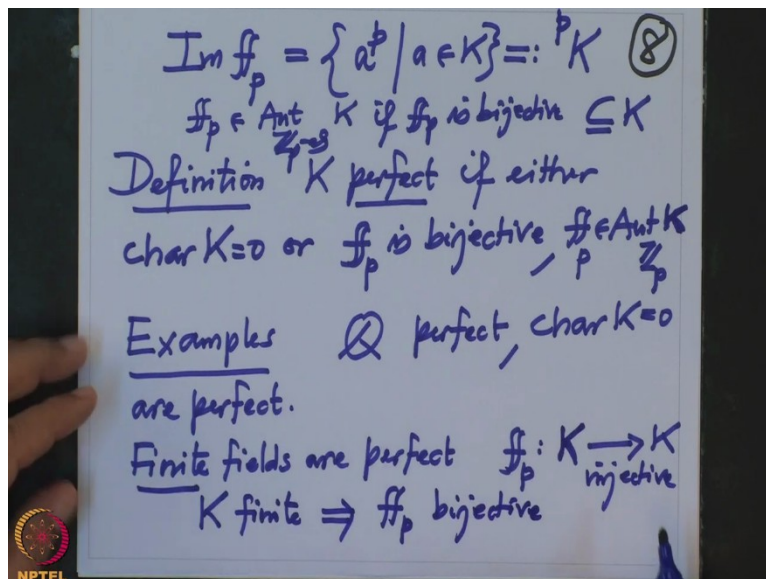 Im ff_p = { a^p | a ∈ K } =: ^pK ⑧
ff_p ∈ Aut_{Z_p-alg} K if ff_p is bijective ⊆ K
Definition K perfect if either
char K=0 or ff_p is bijective, ff_p ∈ Aut_{Z_p} K
Examples ℚ perfect, char K=0
are perfect.
Finite fields are perfect ff_p : K → K injective
K finite ⇒ ff_p bijective
NPTEL